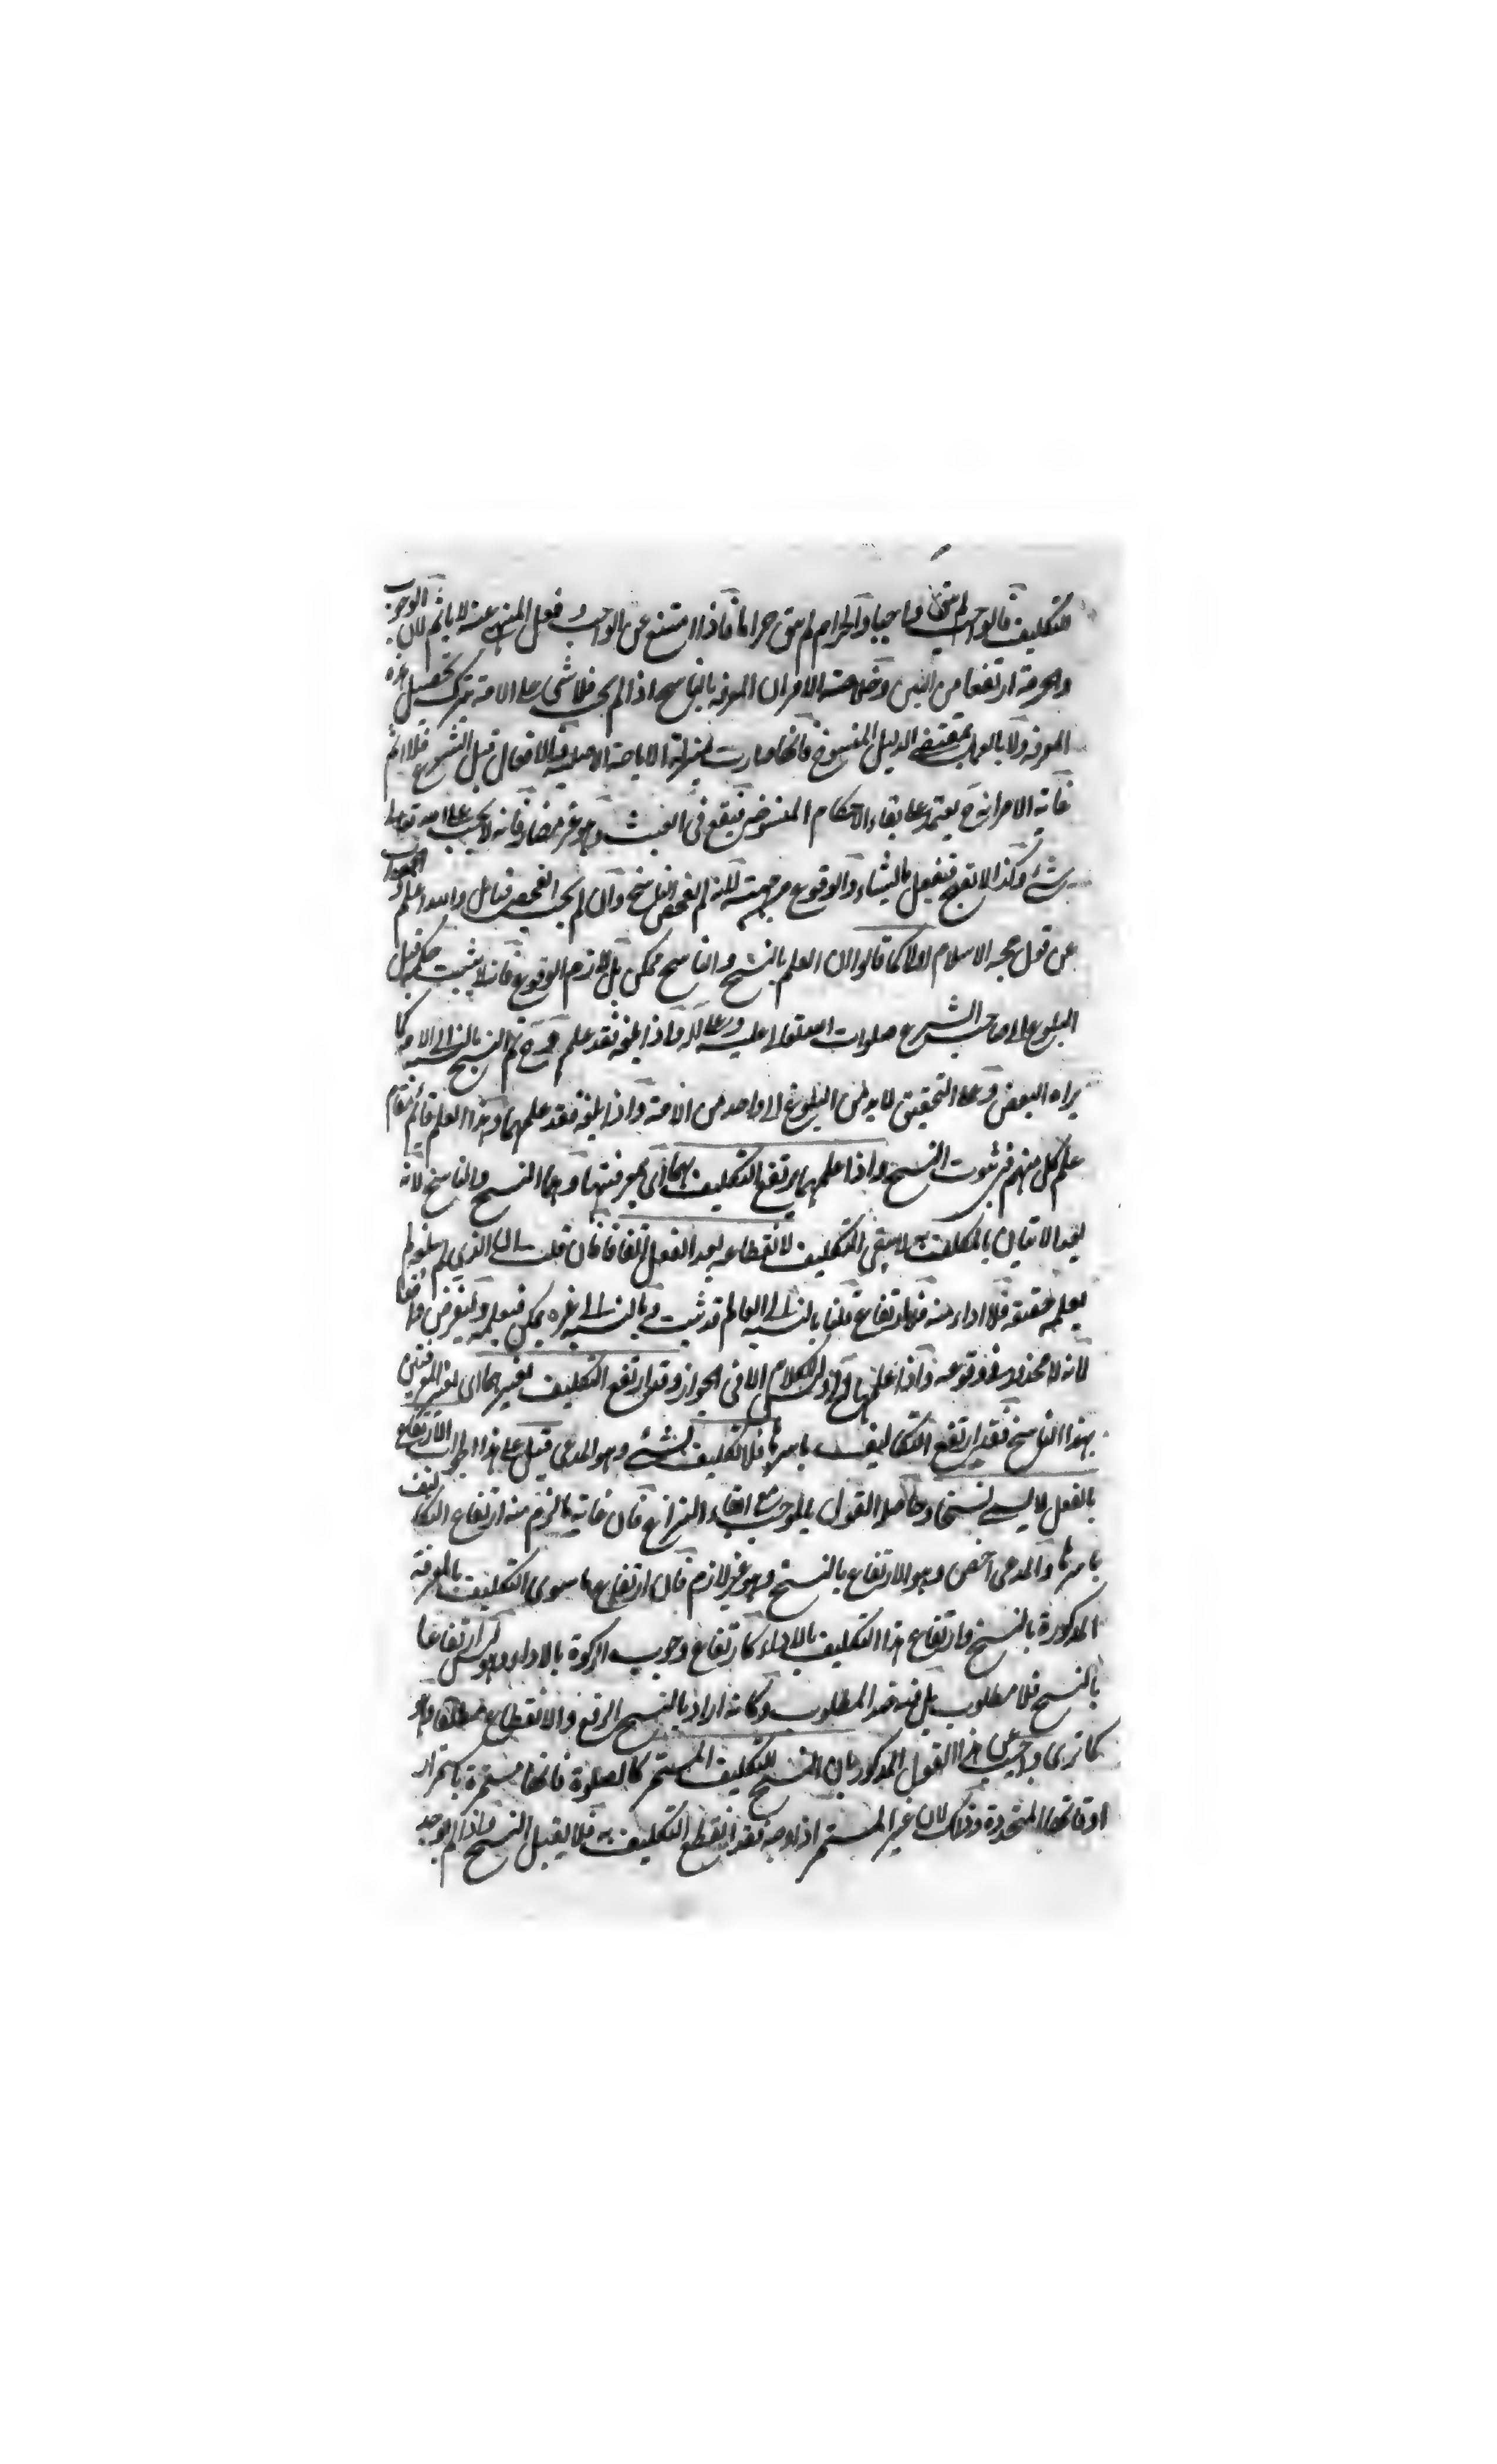 للتكليف فالواجب لم يبق واجبا والحرام لم يبق حراما فاذا امتنع عن الواجب وفعل المنهى عنه لا ياثم لان الوجوب
والحرمة ارتفعا من البين وخلاصته الامر ان المعرفة بالناسخ اذا لم يجب فلا شئ على الامة بترك تحصيل هذه
المعرفة ولا بالعمل بمقتضى الدليل المنسوخ فانها صارت بمنزلة الاباحة الاصلية والافعال قبل الشرع فلا اثم
غاية الامر انه ح يعتمد على بقاء الاحكام المنسوخة فيقع فى العبث وهو غير مضار فانه لا يجب على الله تعالى
شئ وكذا لا يقبح فيفعل ما يشاء والوقوع من جهته لانه لم يفحص الناسخ وان لم يجب الفحص فتامل والله اعلم والجواب
عن قول حجة الاسلام اولا كما قالوا ان العلم بالنسخ والناسخ ممكن بل لازم الوقوع فانه لا يثبت حكم قبل
البلوغ الى صاحب الشرع صلوات الله تعالى عليه وعلى آله واذا بلغه فقد علم هو ح ثم النسخ بالنسبة الى الامة كما
يراه البعض وعلى التحقيق لا بد من البلوغ الى واحد من الامة واذا بلغه فقد علمهما وهذا العلم قائم مقام
علم كل منهم فى ثبوت النسخ واذا علمهما يرتفع التكليف بهما اى بمعرفتهما وهما النسخ والناسخ لانه
بعد الاتيان بالمكلف به لا يبقى التكليف لانقطاعه بعد الفعل اتفاقا فان قلت الذى لم يبلغه ولم
يعلمه حقيقة فلا اداء منه فلا ارتفاع قلنا بالنسبة الى العالم قد ثبت وبالنسبة الى غيره يمكن فيعلمه وليفرض واقعا
لانه لا محذور فى وقوعه واذا علمهما وليس الكلام الا فى الجواز وقد ارتفع التكليف بغيرهما اى بغير المعرفتين
بهذا الناسخ فقد ارتفع التكاليف باسرها فلا تكليف بشئ وهو المدعى قيل على هذا الجواب الارتفاع
بالفعل لا يسمى نسخا وحاصله القول بالموجب مع ابقاء النزاع فان غاية ما لزم منه ارتفاع التكاليف
باسرها والمدعى اخص وهو الارتفاع بالنسخ وهو غير لازم فان ارتفاع ما سوى التكليف بالمعرفة
المذكورة بالنسخ وارتفاع هذا التكليف بالاداء كارتفاع وجوب الزكوة بالاداء وهو ليس ارتفاعا
بالنسخ فلا مطلوب بل فيه ضد المطلوب وكانه اراد بالنسخ الرفع والانقطاع مطلقا وهو
كما ترى واجيب عن هذا القول المذكور بان النسخ للتكليف المستمر كالصلوة فانها مستمرة باستمرار
اوقاتها المتجددة وذلك لان غير المستمر اذا وجد فقد انقطع التكليف به فلا يقبل النسخ واذا لم يوجد